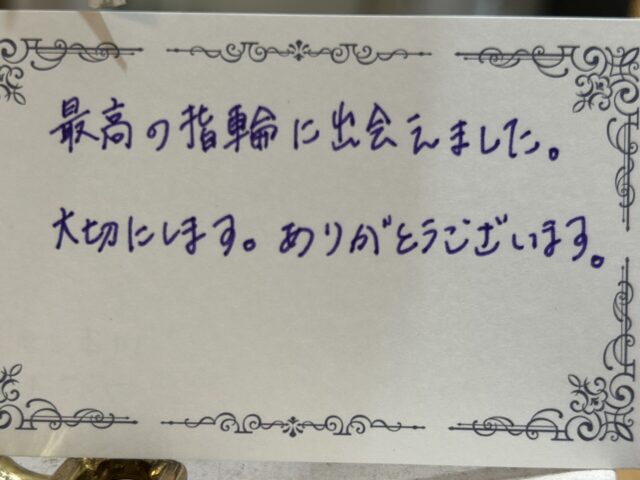 最高の指輪に出会えました。
大切にします。ありがとうございます。